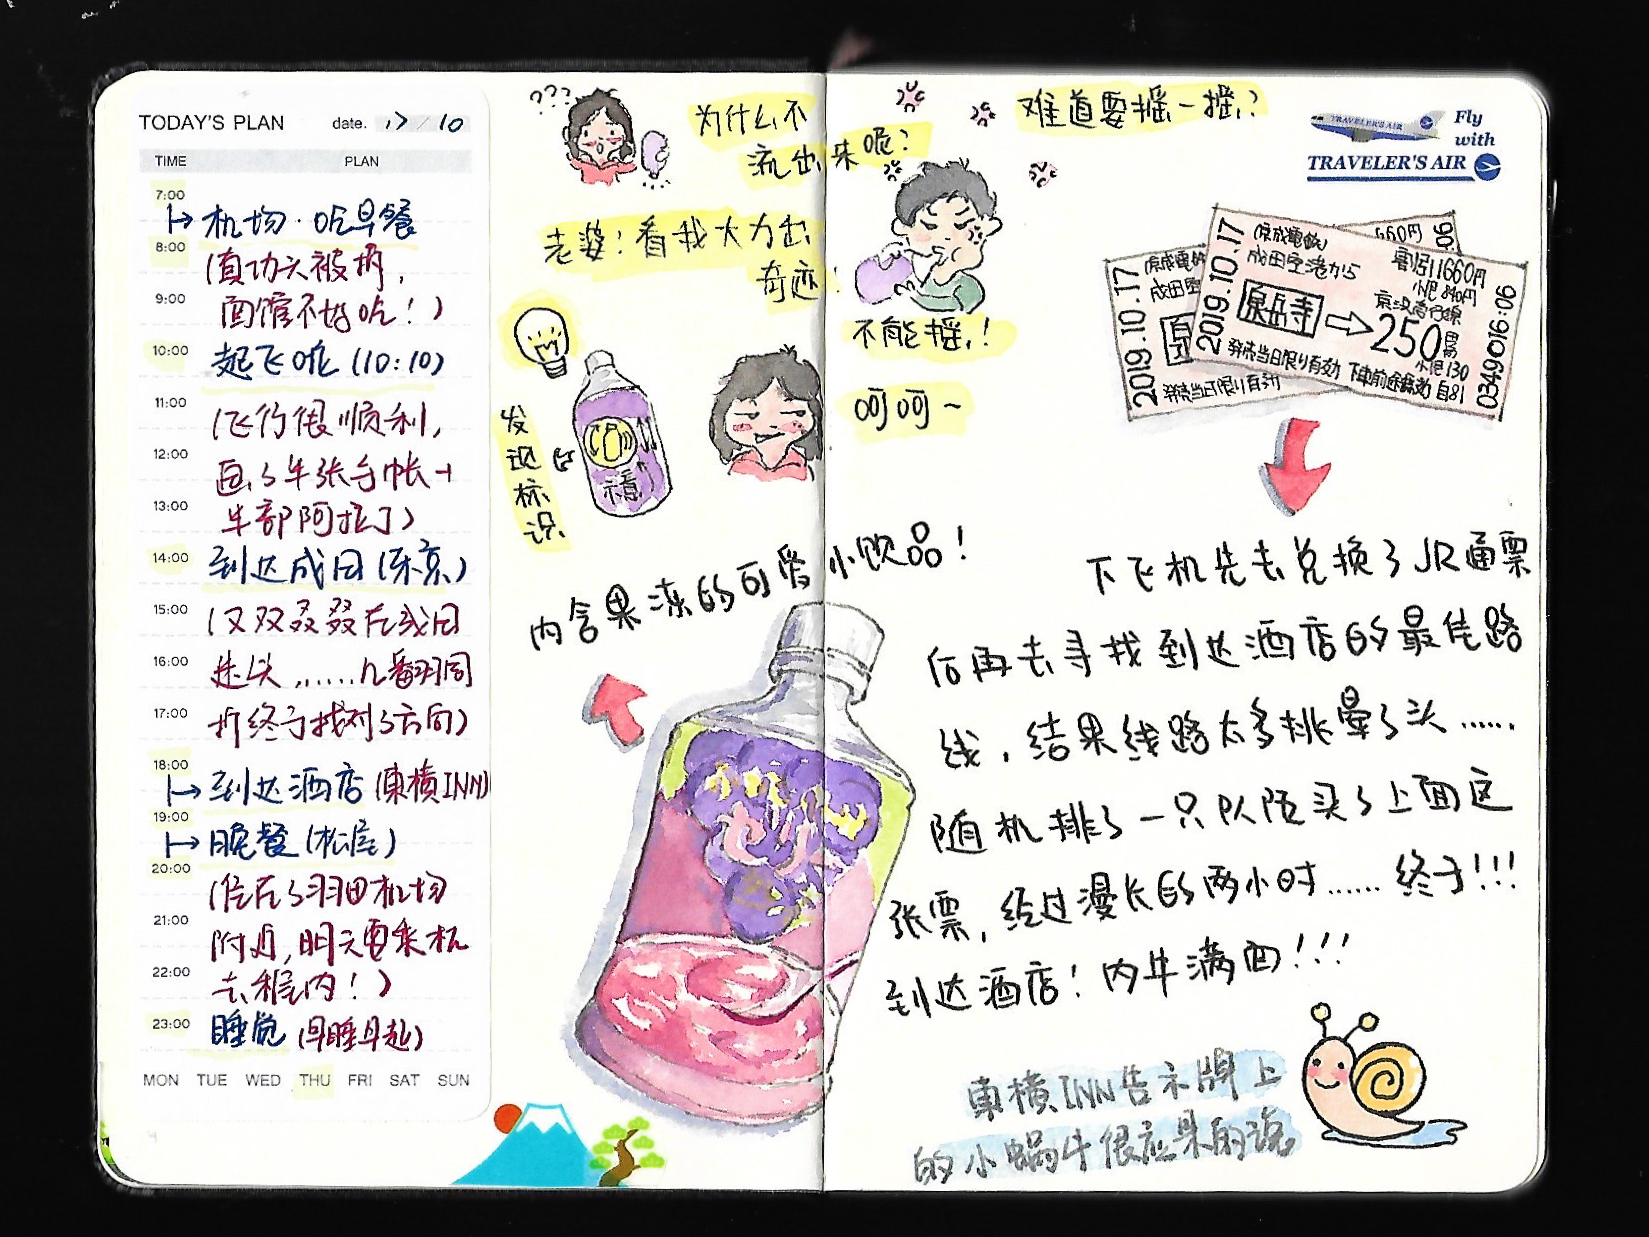 TODAY'S PLAN
date. 17/10
TIME PLAN
7:00
机场·吃早餐
8:00
(真功夫被拆,
9:00
面馆不好吃!)
10:00
起飞啦(10:10)
11:00
(飞行很顺利,
12:00
画了半张手帐+
13:00
半部阿拉丁)
14:00
到达成田(东京)
15:00
(又双叒叕在成田
16:00
迷失……几番周
17:00
折终于找到了方向)
18:00
到达酒店(東横INN)
19:00
晚餐(松屋)
20:00
(住在了羽田机场
21:00
附近,明天要乘机
22:00
去稚内!)
23:00
睡觉(早睡早起)
MON TUE WED THU FRI SAT SUN
???
为什么不
流出来呢?
难道要摇一摇?
老婆!看我大力出
奇迹!
不能摇!
呵呵~
发现标识
注意
内含果冻的可爱小饮品!
Fly
with
TRAVELER'S AIR
TRAVELER'S AIR
2019.10.17
成田空
発売当日限り有効
660円
06
2019.10.17
(京成電鉄)
成田空港から
泉岳寺
250円
割引1660円
小児840円
京浜急行線
小児130
発売当日限り有効 下車前途無効
0349016:06
下飞机先去兑换了JR通票
后再去寻找到达酒店的最佳路
线,结果线路太多挑晕了头……
随机排了一只队伍买了上面这
张票,经过漫长的两小时……终于!!!
到达酒店!内牛满面!!!
東横INN告示牌上
的小蜗牛很应景的说